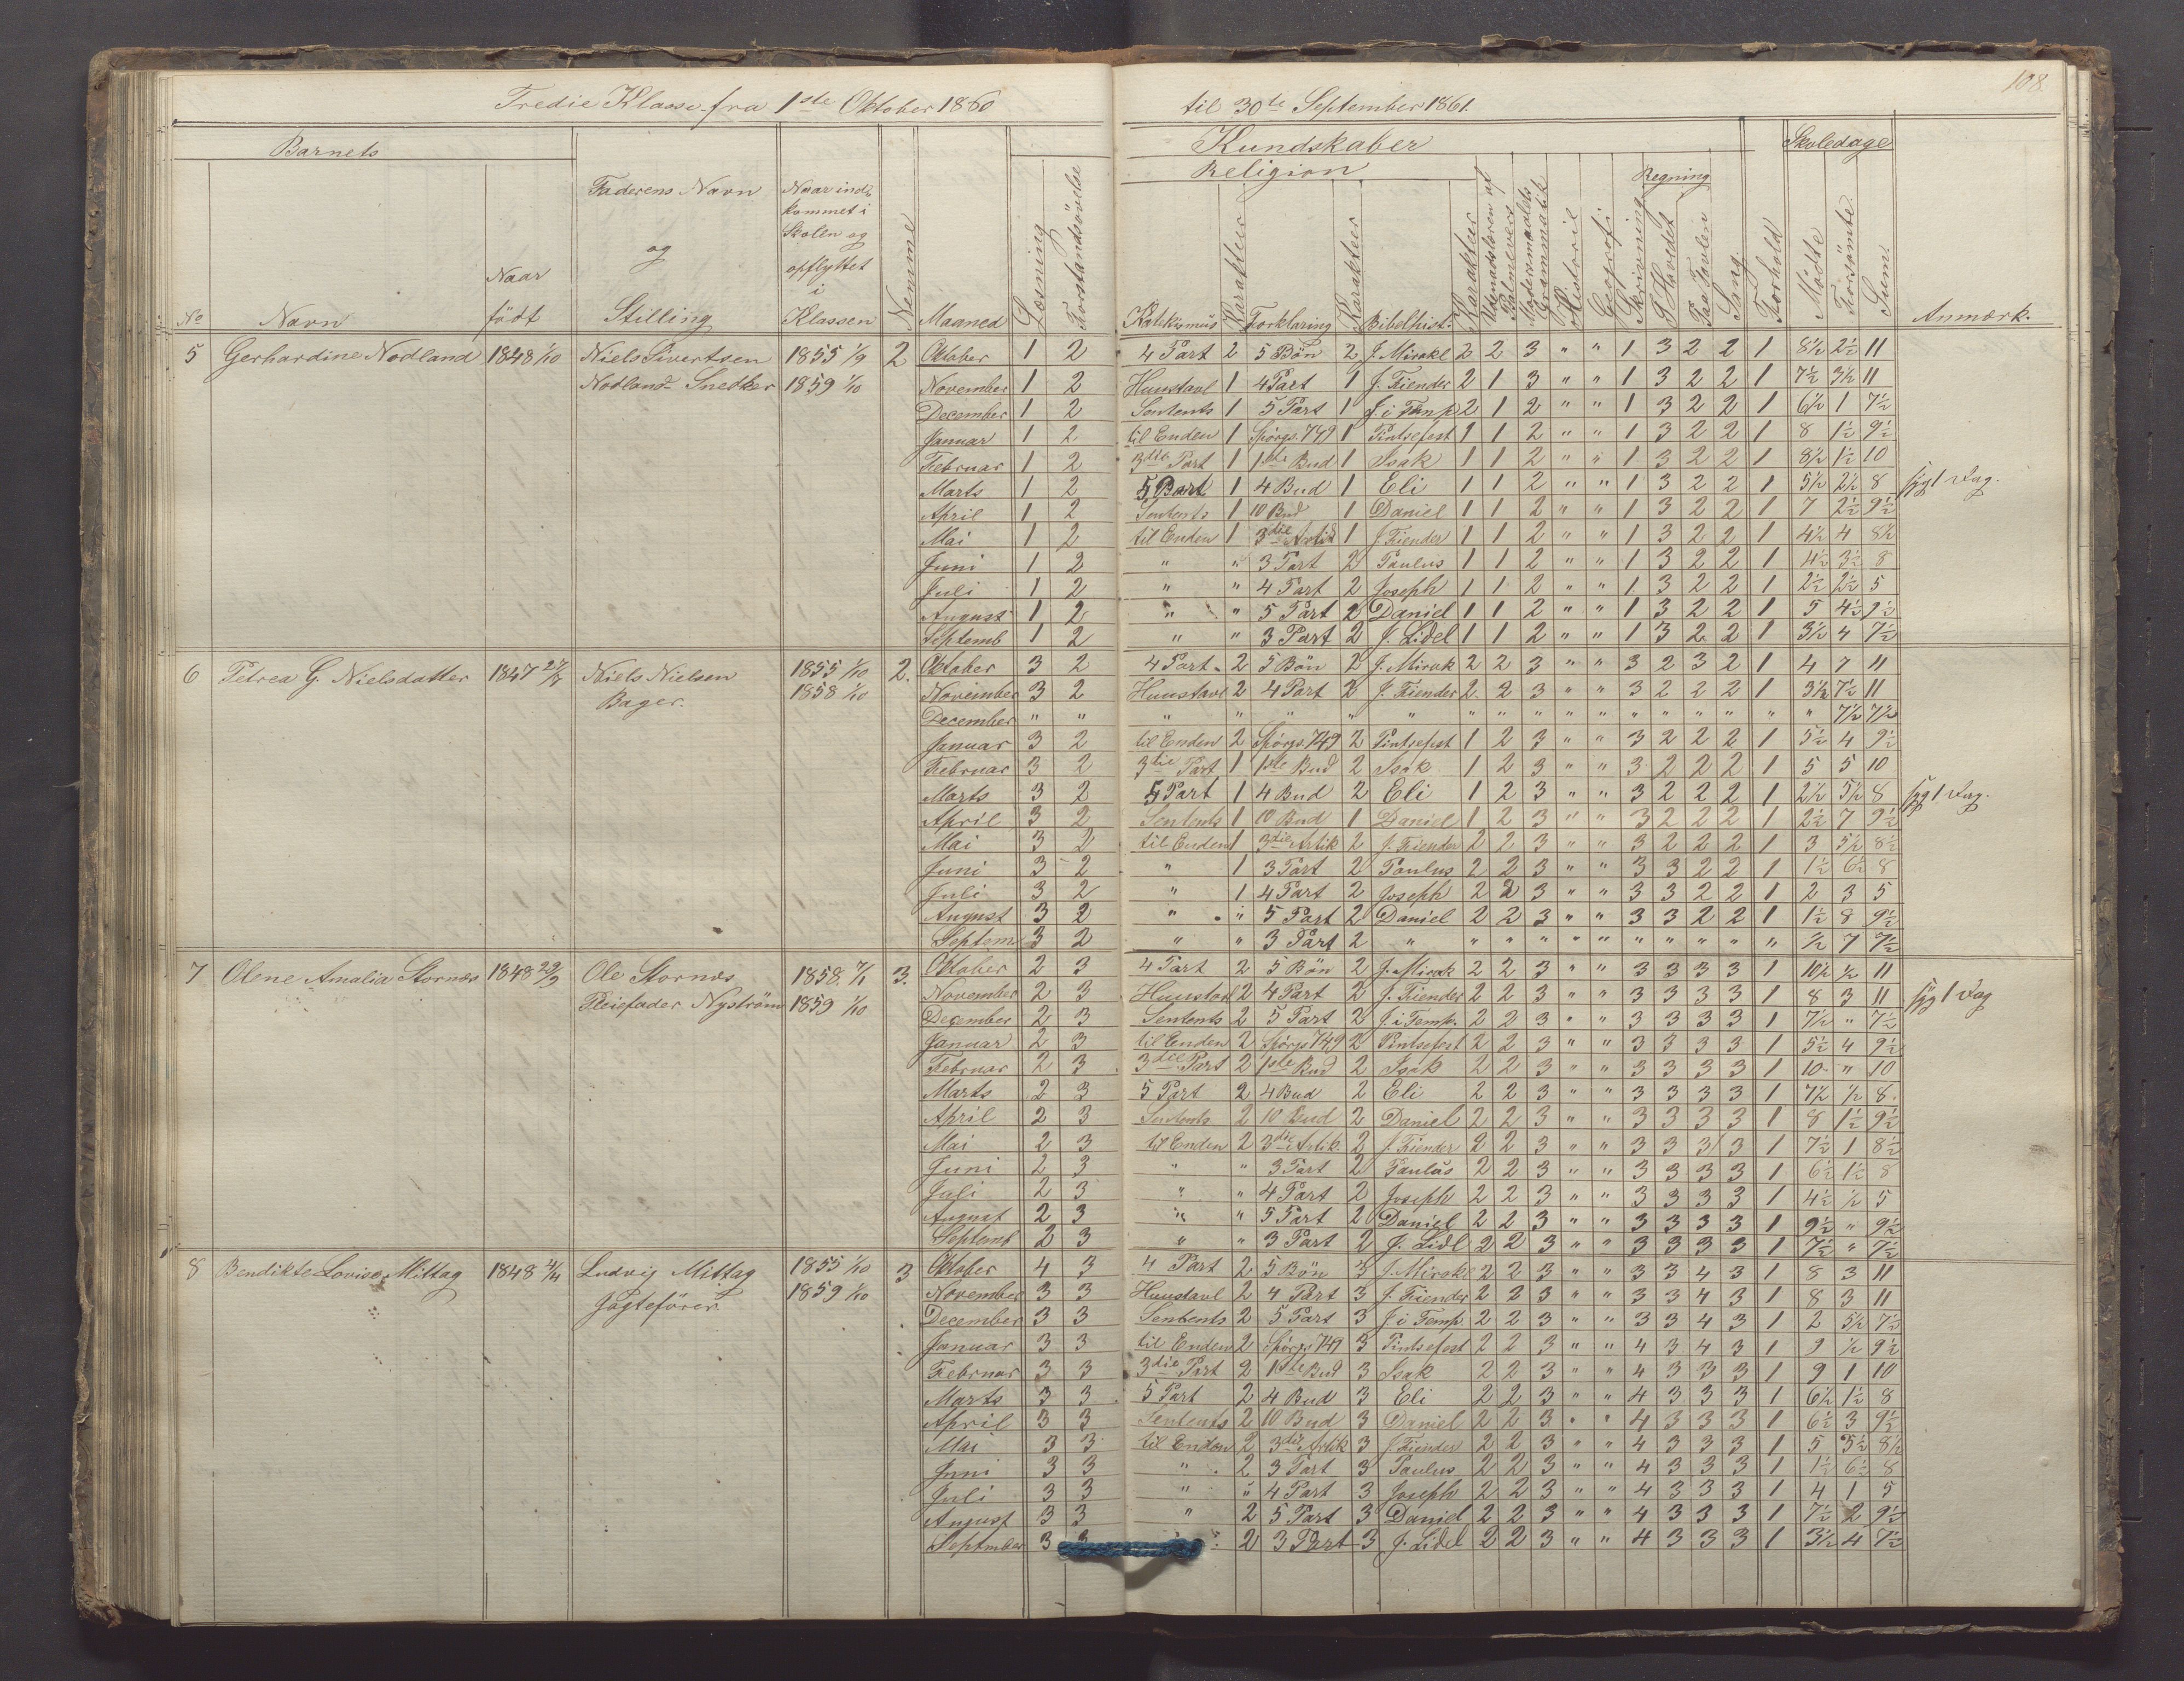 108.
Tredie Klasse fra 1ste Oktober 1860 til 30te September 1861.
Barnets Kundskaber Skoledage
Religion Regning
No Navn Naar födt Faderens Navn og Stilling Naar indkommet i Skolen og opflyttet i Klassen Nemme Maaned Læsning Forstandsövelse Katekismus Karakteer Forklaring Karakteer Bibelhist. Karakteer Udenadslæren af Psalmevers Modersmaalets Grammatik Historie Geografi Skrivning I Hovedet Paa Tavlen Sang Forhold Mödte Forsömte Sum Anmærk.
5 Gerhardine Nodland 1848 1/10 Niels Sivertsen 1855 1/9 2 Oktober 1 2 4 Part 2 5 Bön 2 J. Mirakl 2 2 3 " " 1 3 2 2 1 8½ 2½ 11
Nodland Snedker 1859 1/10 November 1 2 Huustavl 1 4 Part 1 J. Fiender 2 1 3 " " 1 3 2 2 1 7½ 3½ 11
December 1 2 Sentents 1 5 Part 1 J. i Temp 2 1 2 " " 1 3 2 2 1 6½ 1 7½
Januar 1 2 til Enden 1 Spörgs. 749 1 Pintsefest 1 1 2 " " 1 3 2 2 1 8 1½ 9½
Februar 1 2 3die Part 1 1ste Bud 1 Isak 1 1 2 " " 1 3 2 2 1 8½ 1½ 10
Marts 1 2 5 Part 1 4 Bud 1 Eli 1 1 2 " " 1 3 2 2 1 5½ 2½ 8 syg 1 Dag.
April 1 2 Sentents 1 10 Bud 1 Daniel 1 1 2 " " 1 3 2 2 1 7 2½ 9½
Mai 1 2 til Enden 1 3die Artik 1 J. Fiender 1 1 2 " " 1 3 2 2 1 4½ 4 8½
Juni 1 2 " " 3 Part 2 Paulus 1 1 2 " " 1 3 2 2 1 4½ 3½ 8
Juli 1 2 " " 4 Part 2 Joseph 1 1 2 " " 1 3 2 2 1 2½ 2½ 5
August 1 2 " " 5 Part 2 Daniel 1 1 2 " " 1 3 2 2 1 5 4½ 9½
Septemb 1 2 " " 3 Part 2 J. Lidel 1 1 2 " " 1 3 2 2 1 3½ 4 7½
6 Petrea G. Nielsdatter 1847 Niels Nielsen 1855 1/10 2. Oktober 3 2 4 Part 2 5 Bön 2 J. Mirak 2 2 3 " " 3 2 3 2 1 4 7 11
Bager. 1858 1/10 November 3 2 Huustavl 2 4 Part 2 J. Fiender 2 2 3 " " 3 2 2 2 1 3½ 7½ 11
December " " " " " " " " " " " " " " " " " " 7½ 7½
Januar 3 2 til Enden 2 Spörgs. 749 2 Pintsefest 1 2 3 " " 3 2 2 2 1 5½ 4 9½
Februar 3 2 3die Part 1 1ste Bud 2 Isak 1 2 3 " " 3 2 2 2 1 5 5 10
Marts 3 2 5 Part 1 4 Bud 2 Eli 1 2 3 " " 3 2 2 2 1 2½ 5½ 8 syg 1 Dag.
April 3 2 Sentents 1 10 Bud 1 Daniel 1 2 3 " " 3 2 2 2 1 2½ 7 9½
Mai 3 2 til Enden 1 3die Artik 2 J. Fiender 2 2 3 " " 3 2 2 2 1 3 5½ 8½
Juni 3 2 " 1 3 Part 2 Paulus 2 2 3 " " 3 3 2 2 1 1½ 6½ 8
Juli 3 2 " 1 4 Part 2 Joseph 2 2 3 " " 3 3 2 2 1 2 3 5
August 3 2 " " 5 Part 2 Daniel 2 2 3 " " 3 3 2 2 1 1½ 8 9½
Septem 3 2 " " 3 Part 2 " " " " " " " " " " " ½ 7 7½
7 Olene Amalia Stornæs 1848 29/9 Ole Stornæs 1858. 7/1 3. Oktober 2 3 4 Part 2 5 Bön 2 J. Mirak 2 2 3 " " 3 3 3 3 1 10½ ½ 11
Pleiefader Nyström 1859 1/10 November 2 3 Huustavl 2 4 Part 2 J. Fiender 2 2 3 " " 3 3 3 3 1 8 3 11 syg 1 Dag
December 2 3 Sentents 2 5 Part 2 J. i Temp. 2 2 3 " " 3 3 3 3 1 7½ " 7½
Januar 2 3 til Enden 2 Spörgs 749 2 Pintsefest 2 2 3 " " 3 3 3 3 1 5½ 4 9½
Februar 2 3 3die Part 2 1ste Bud 2 Isak 2 2 3 " " 3 3 3 3 1 10 " 10
Marts 2 3 5 Part 2 4 Bud 2 Eli 2 2 3 " " 3 3 3 3 1 7½ ½ 8.
April 2 3 Sentents 2 10 Bud 2 Daniel 2 2 3 " " 3 3 3 3 1 8 1½ 9½
Mai 2 3 til Enden 2 3die Artik. 2 J. Fiender 2 2 3 " " 3 3 3 3 1 7½ 1 8½
Juni 2 3 " " 3 Part 2 Paulus 2 2 3 " " 3 3 3 3 1 6½ 1½ 8
Juli 2 3 " " 4 Part 2 Joseph 2 2 3 " " 3 3 3 3 1 4½ ½ 5
August 2 3 " " 5 Part 2 Daniel 2 2 3 " " 3 3 3 3 1 9½ " 9½
Septemb 2 3 " " 3 Part 2 J. Lidl 2 2 3 " " 3 3 3 3 1 7½ " 7½
8 Bendikte Lovise Mittag 1848 Ludvig Mittag 1855 1/10 3 Oktober 4 3 4 Part 2 5 Bön 3 J. Mirakl 2 2 3 " " 3 3 4 3 1 8 3 11
Jagtefører 1859 1/10 November 3 3 Huustavl 2 4 Part 3 J. Fiender 2 2 3 " " 3 3 4 3 1 8 3 11
December 3 3 Sentents 2 5 Part 3 J. i Temp. 2 2 3 " " 3 3 4 3 1 2 5½ 7½
Januar 3 3 til Enden 2 Spörgs 749 3 Pintsefest 2 2 3 " " 4 3 4 3 1 9 ½ 9½
Februar 3 3 3die Part 2 1ste Bud 3 Isak 2 2 3 " " 4 3 3 3 1 9 1 10
Marts 3 3 5 Part 2 4 Bud 3 Eli 2 2 3 " " 4 3 3 3 1 6½ 1½ 8
April 3 3 Sentents 2 10 Bud 3 Daniel 2 2 3 " " 4 3 3 3 1 6½ 3 9½
Mai 3 3 til Enden 2 3die Artik 3 J. Fiender 2 2 3 " " 4 3 3 3 1 5 3½ 8½
Juni 3 3 " 2 3 Part 3 Paulus 2 2 3 " " 4 3 3 3 1 1½ 6½ 8
Juli 3 3 " " 4 Part 3 Joseph 2 2 3 " " 4 3 3 3 1 4 1 5
August 3 3 " 2 5 Part 3 Daniel 2 2 3 " " 4 3 3 3 1 7½ 2 9½
September 3 3 " 2 3 Part 3 J. Lidel 2 2 3 " " 4 3 3 3 1 3½ 4 7½